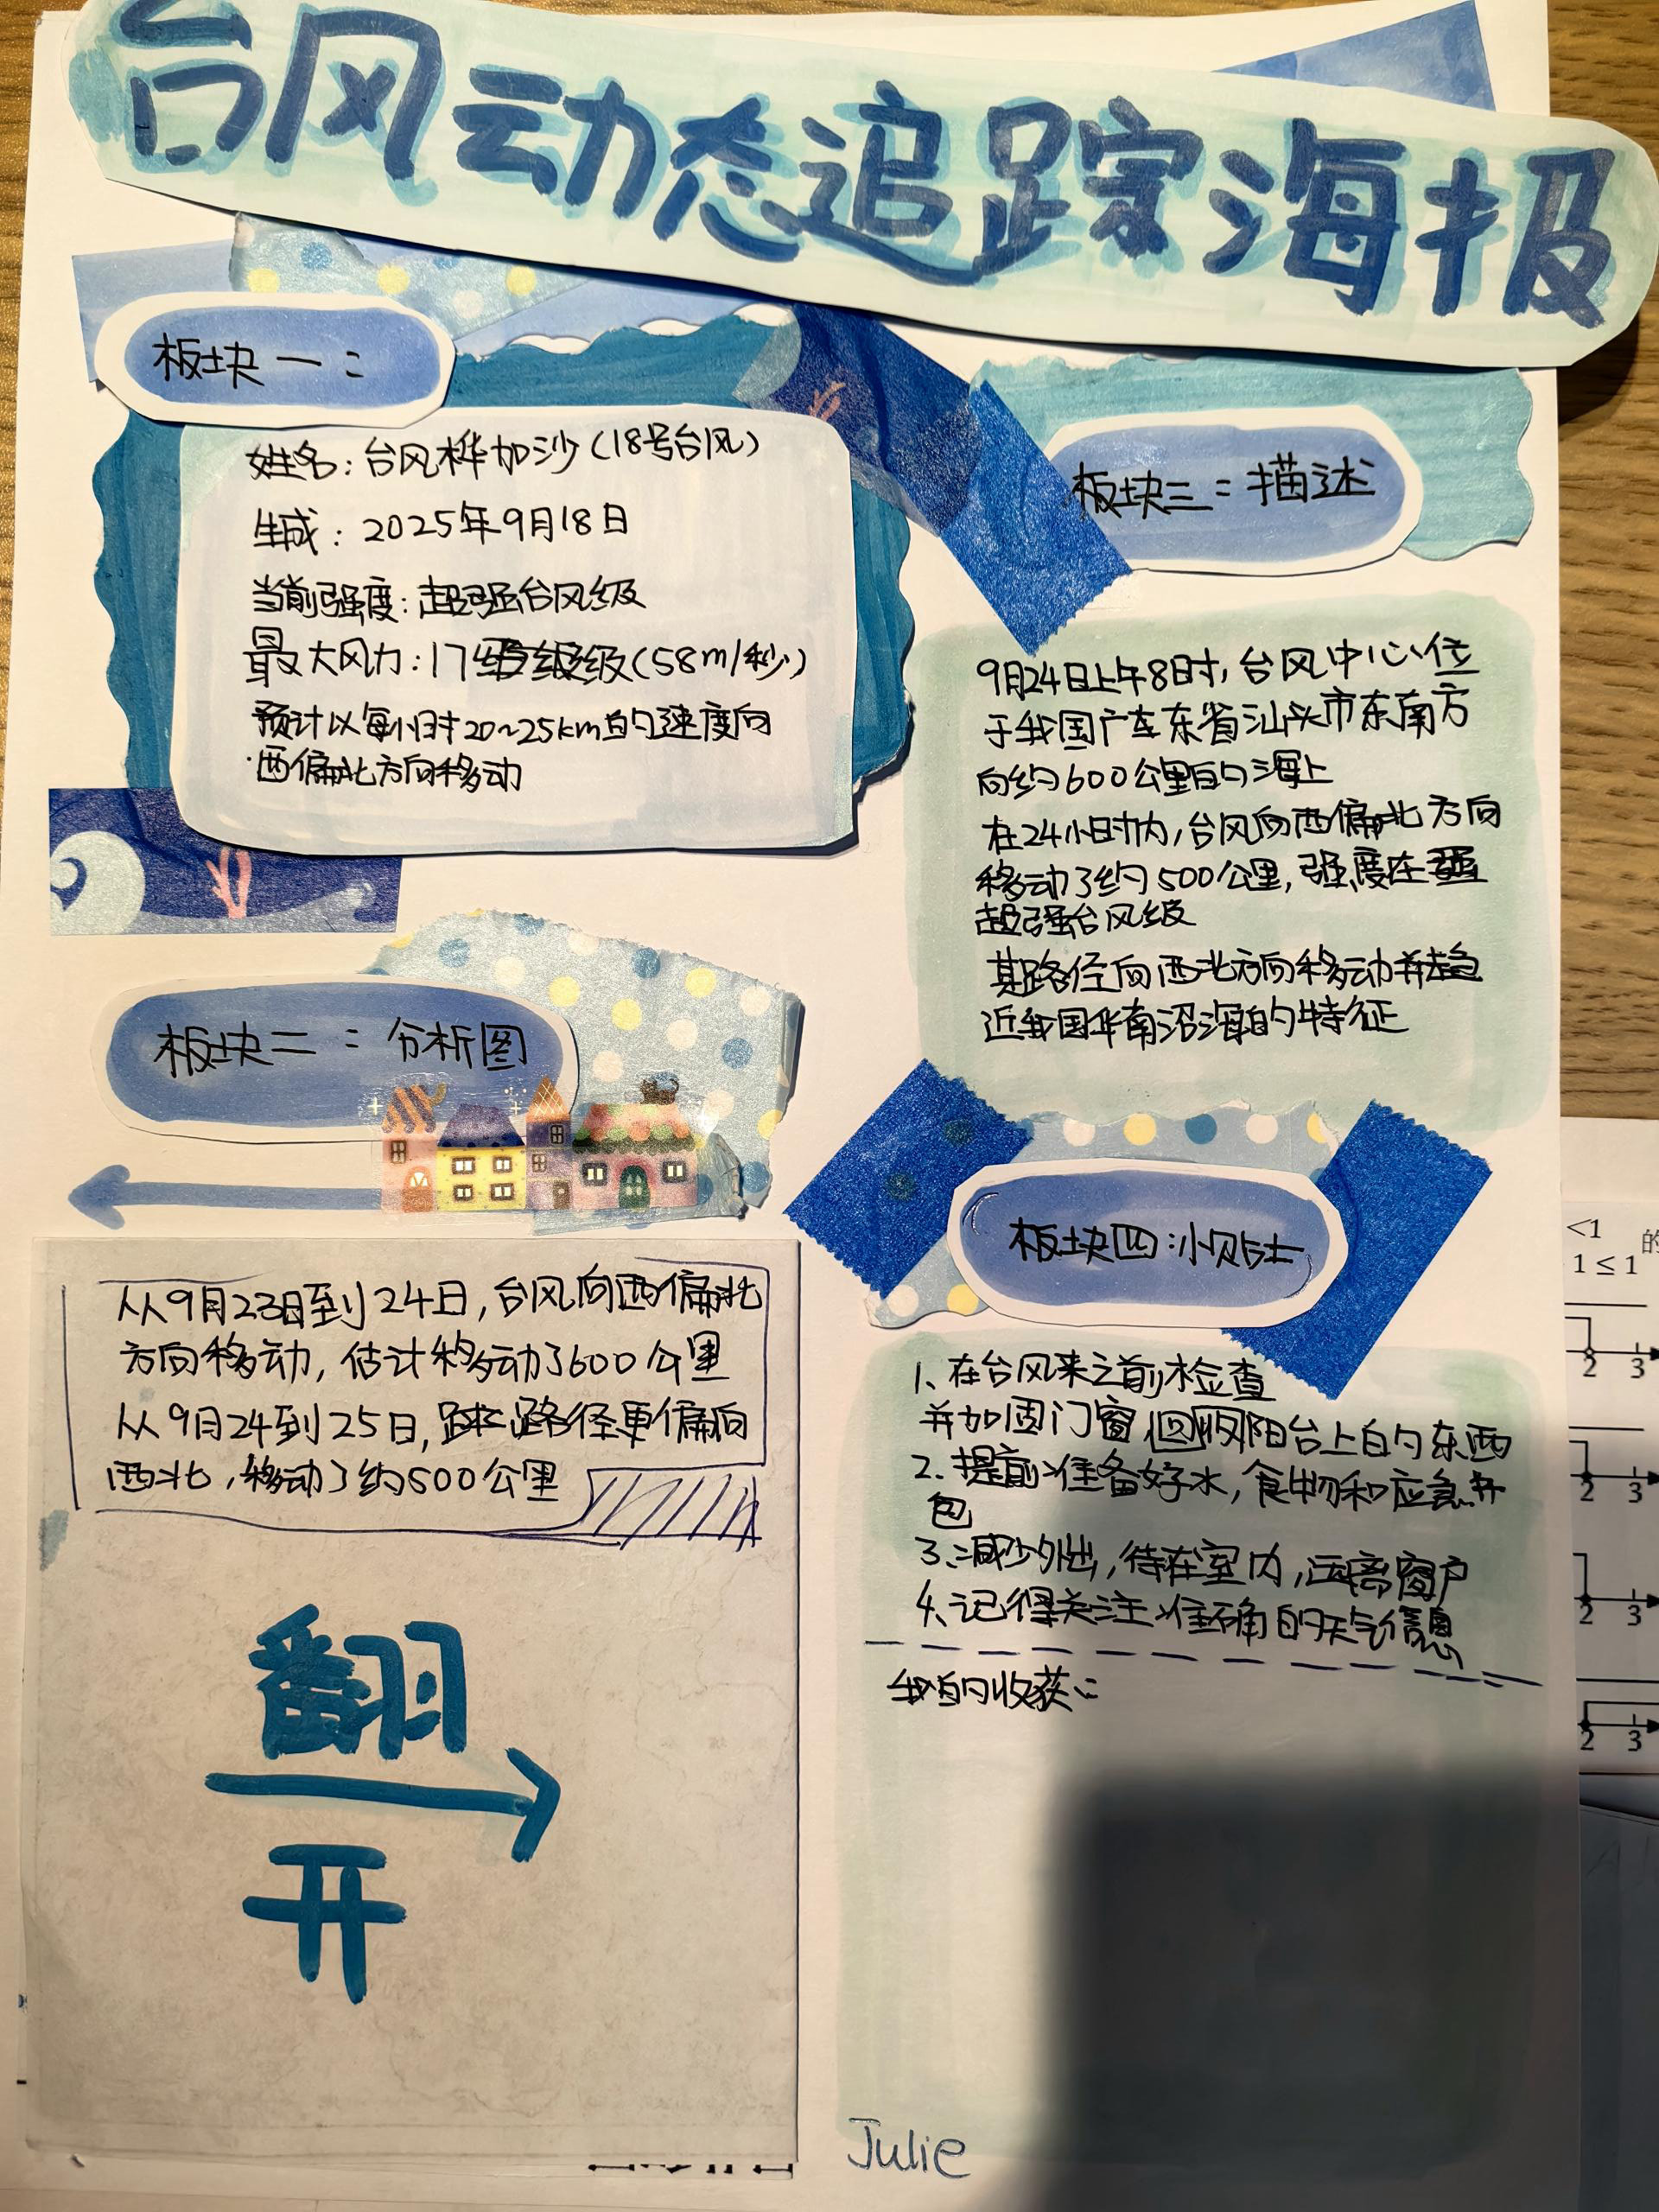 台风动态追踪海报
板块一：
姓名：台风桦加沙（18号台风）
生成：2025年9月18日
当前强度：超强台风级
最大风力：17级（58m/秒）
预计以每小时20~25km的速度向
西偏北方向移动
板块二：分析图
从9月23日到24日，台风向西偏北
方向移动，估计移动了600公里
从9月24到25日，路径更偏向
西北，移动了约500公里
翻
开
板块三：描述
9月24日上午8时，台风中心位
于我国广东省汕头市东南方
向约600公里的海上
在24小时内，台风向西偏北方向
移动了约500公里，强度在
超强台风级
其路径向西北方向移动并趋
近我国华南沿海的特征
板块四：小贴士
1、在台风来之前检查
并加固门窗，回收阳台上的东西
2、提前准备好水，食物和应急
包
3、减少外出，待在室内，远离窗户
4、记得关注准确的天气信息
我的收获：
Julie
<1
的
1≤1
2 3
2 3
2 3
2 3